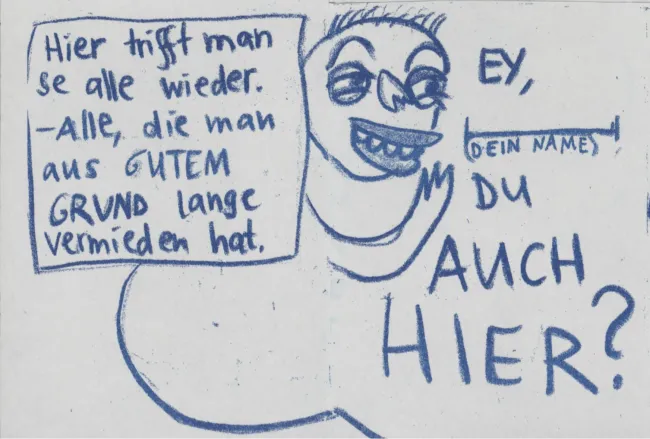 Hier trifft man
se alle wieder.
-Alle, die man
aus GUTEM
GRUND lange
vermieden hat.
EY,
(DEIN NAME)
DU
AUCH
HIER?